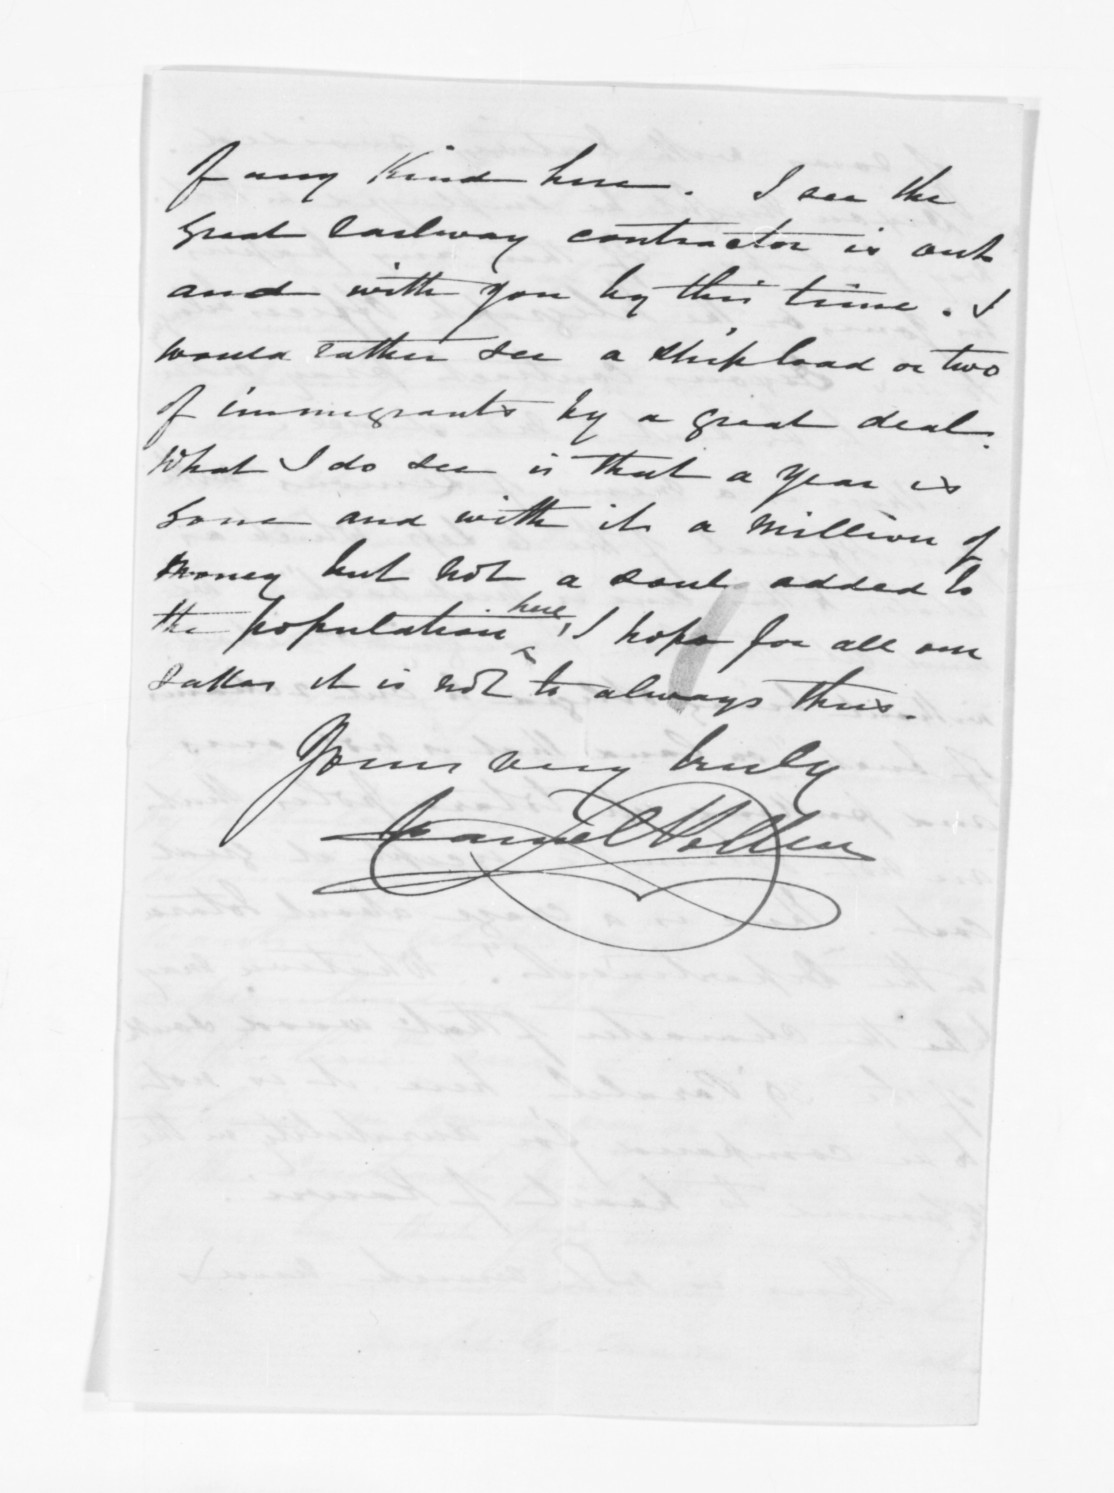 of any Kind here. I see the
great railway contractor is out
and with you by this time. I
would rather see a ship load or two
of immigrants by a great deal.
What I do see is that a year is
gone and with it a million of
money but not a soul added to
the population here, I hope for all our
sakes it is not to always thus.
Yours very truly
Daniel Pollen